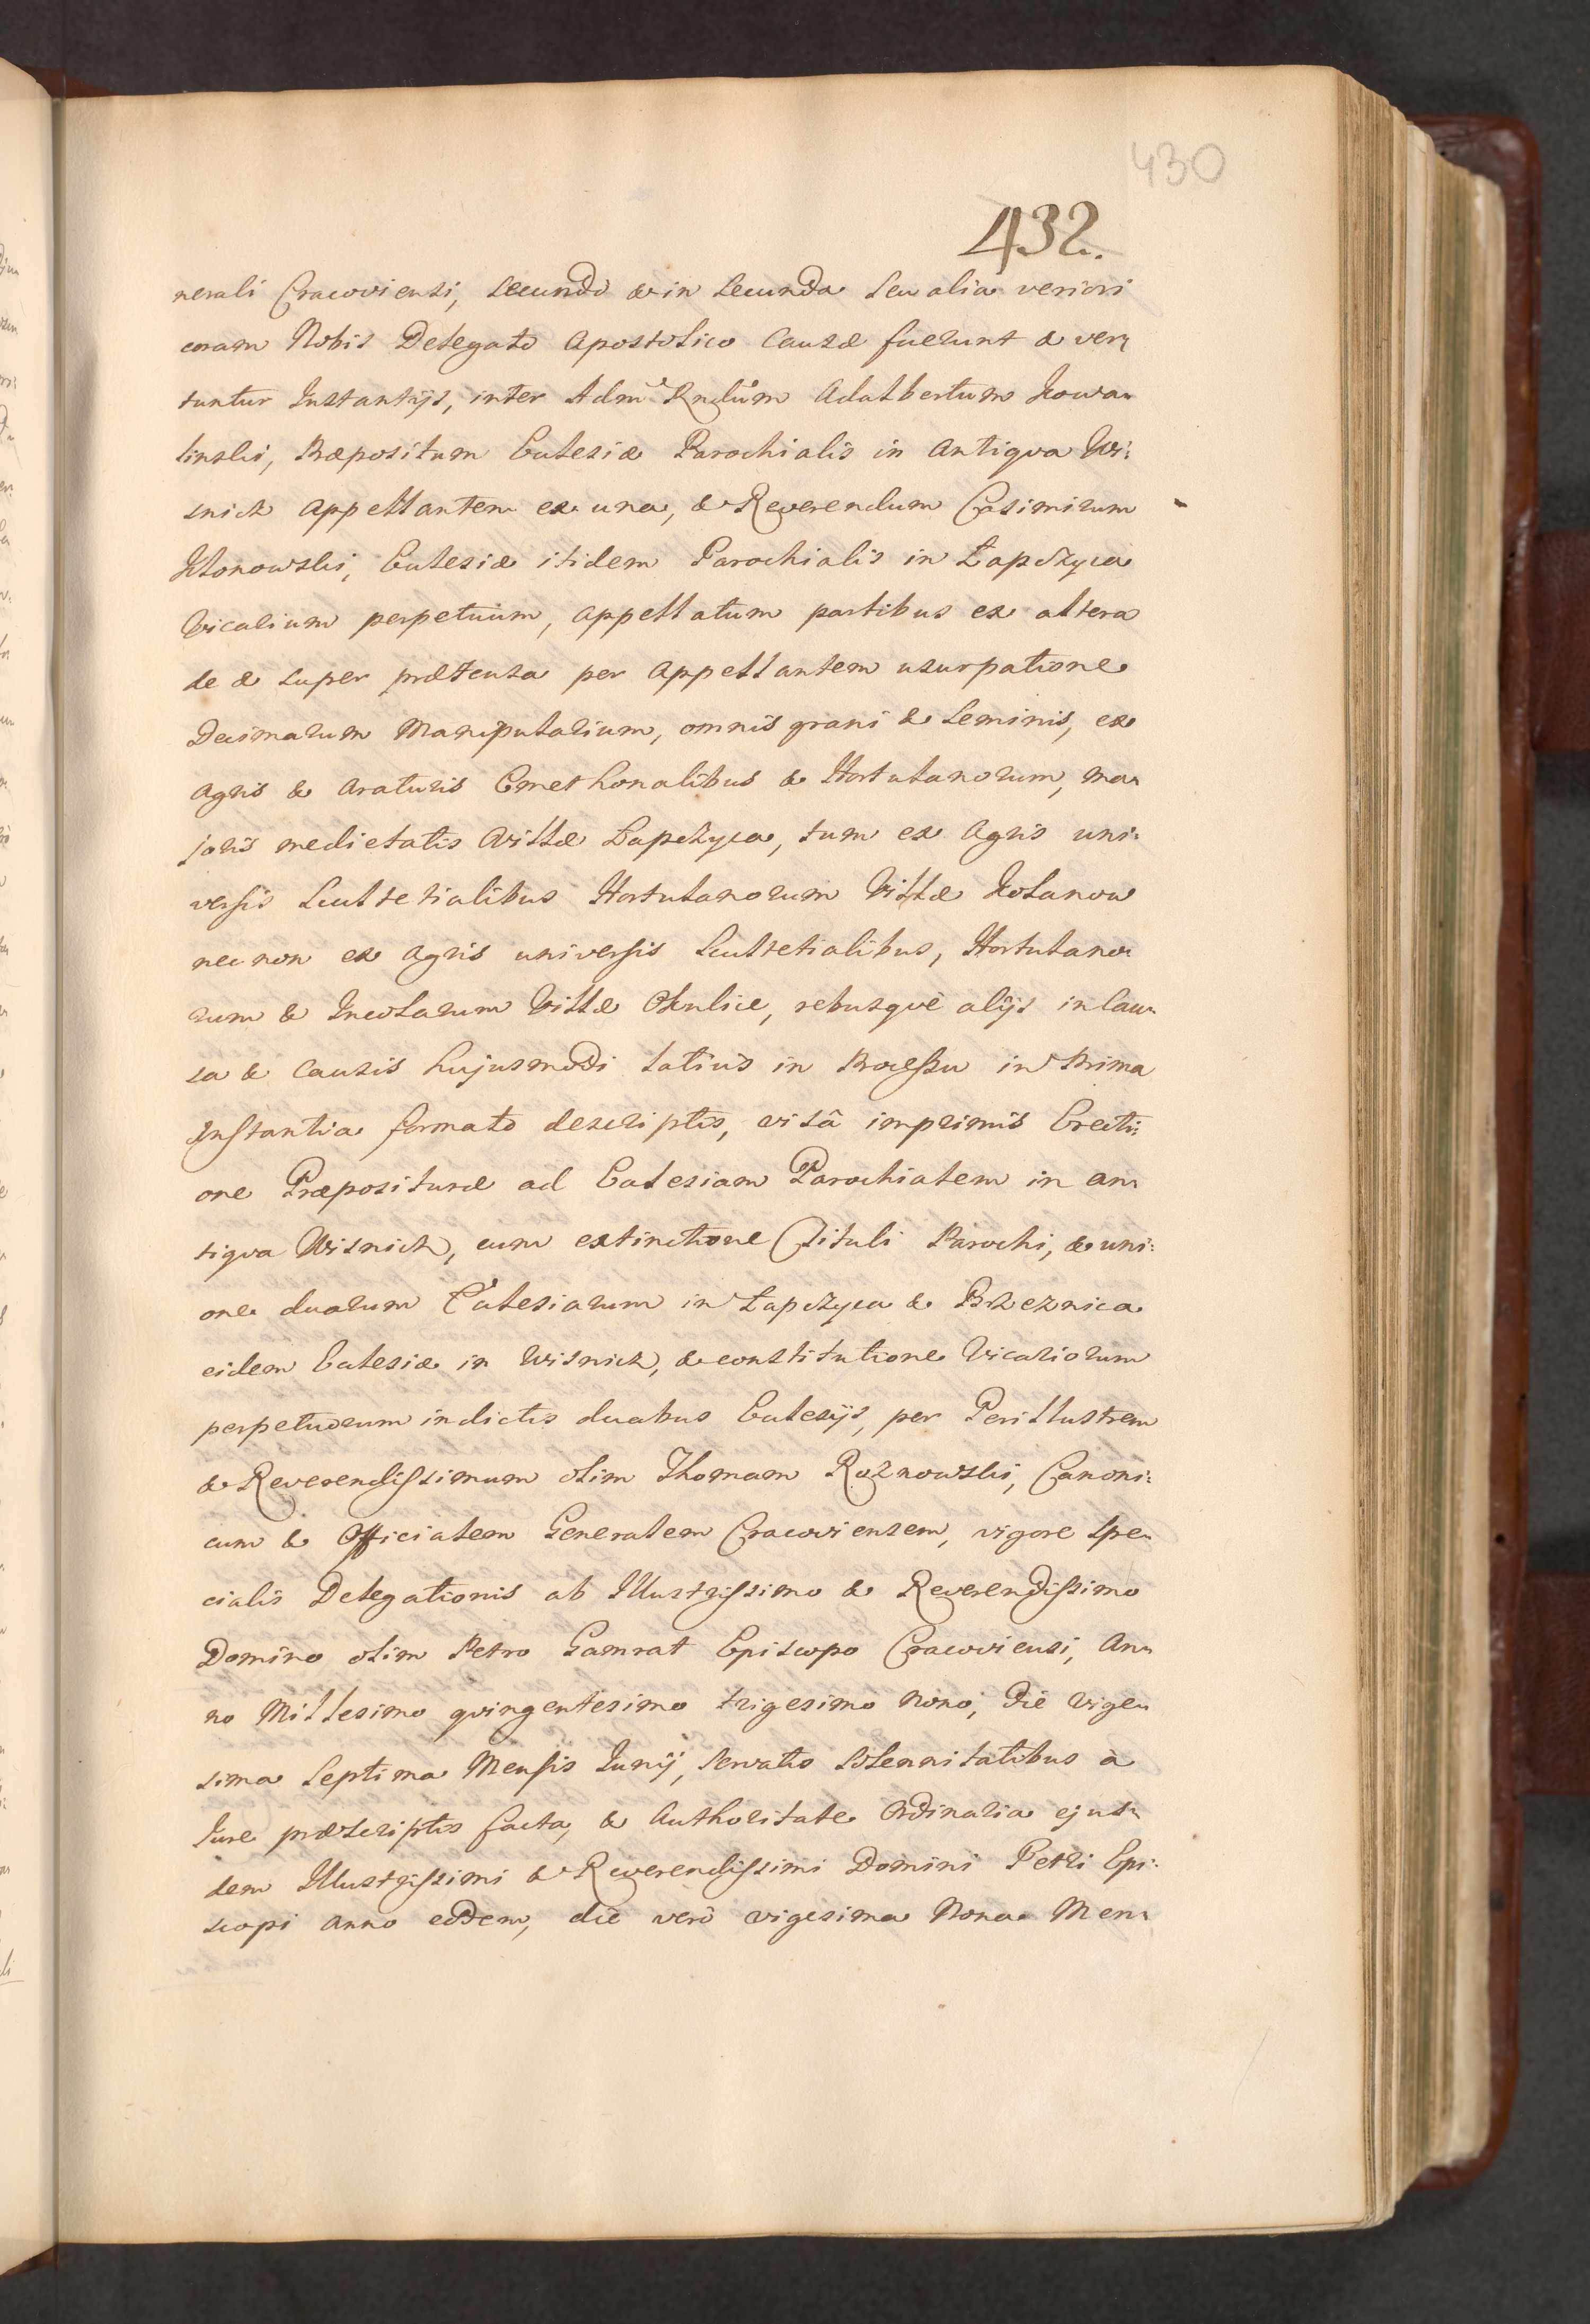 430
432.
nerali Cracoviensi, secundo & in secunda seu alia veriori
coram Nobis Delegato Apostolico Causæ fuerunt & ver¬
tuntur Instantijs, inter Adm Rndum Adalbertum Kowa¬
linski, Præpositum Eclesiæ Parochialis in Antiqva Wi¬
snicz Appellantem ex una, & Reverendum Casimirum
Klonowski, Eclesiæ itidem Parochialis in Łapczyca
Vicarium perpetuum, Appellatum partibus ex altera
de & super prætensa per Appellantem usurpatione
Decimarum Manipularium, omnis grani & seminis, ex
Agris & Araturis Cmethonalibus & Hortulanorum, ma¬
joris medietatis Villæ Łapczyca, tum ex Agris uni¬
versis Scultetialibus Hortulanorum Villæ Kolanow
nec non ex Agris universis Scultetialibus, Hortulano¬
rum & Incolarum Villæ Okulice, rebusqve alijs in Cau¬
sa & Causis hujusmodi latius in Processu in Prima
Instantia formato descriptis, visâ imprimis Erecti¬
one Præposituræ ad Eclesiam Parochialem in an¬
tiqva Wisnicz, cum extinctione Tituli Parochi, & uni¬
one duarum Eclesiarum in Łapczyca & Brzeznica
eidem Eclesiæ in Wisnicz, & constitutione Vicariorum
perpetuorum in dictis duabus Eclesijs, per Perillustrem
& Reverendissimum olim Thomam Roznowski, Canoni¬
cum & Officialem Generalem Cracoviensem, vigore spe¬
cialis Delegationis ab Illustrissimo & Reverendissimo
Domino olim Petro Gamrat Episcopo Cracoviensi, An¬
no Millesimo qvingentesimo trigesimo nono, die vige¬
sima septima Mensis Junij, servatis solennitatibus à
Jure præscriptis facta, & Authoritate Ordinaria ejus¬
dem Illustrissimi & Reverendissimi Domini Petri Epi¬
scopi Anno eodem, die verò vigesima Nona Men¬